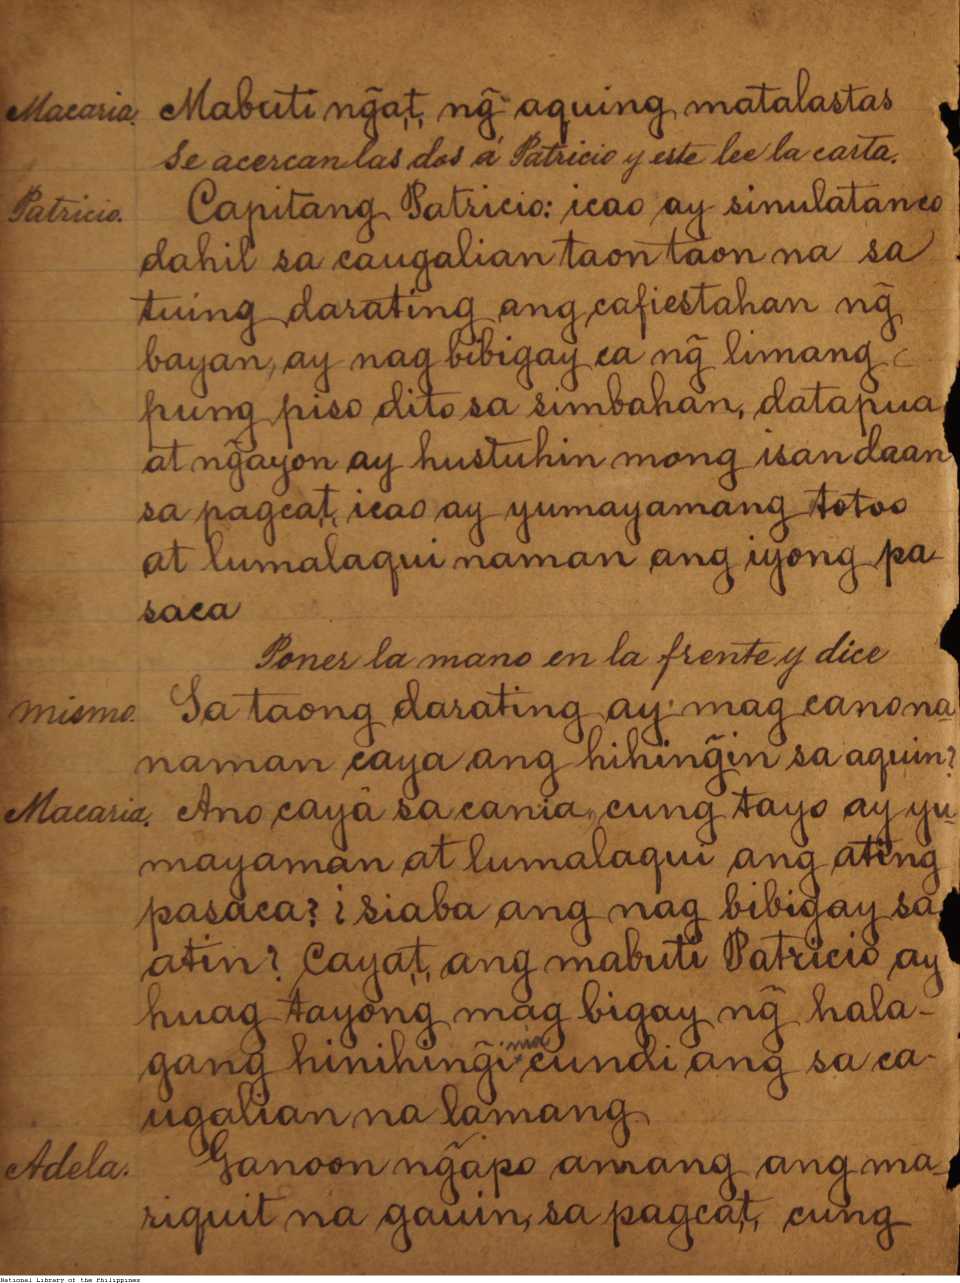 Macaria. Mabuti ng̃at, ng̃ aquing matalastas
Se acercan las dos á Patricio y este lee la carta.
Patricio. Capitang Patricio: icao ay sinulatanco
dahil sa caugalian taon taon na sa
tuing darating ang cafiestahan ng̃
bayan, ay nag bibigay ca ng̃ limang
pung piso dito sa simbahan, datapua
at ng̃ayon ay hustuhin mong isan daan
sa pagcat, icao ay yumayamang totoo
at lumalaqui naman ang iyong pa-
saca
Poner la mano en la frente y dice
Mismo. Sa taong darating ay mag cano na
naman caya ang hihing̃in sa aquin?
Macaria. Ano cayâ sa cania, cung tayo ay yu-
mayaman at lumalaqui ang ating
pasaca? ¿siaba ang nag bibigay sa
atin? Cayat, ang mabuti Patricio ay
huag tayong mag bigay ng̃ hala-
gang hinihing̃i nia cundi ang sa ca-
ugalian na lamang
Adela. Ganoon ng̃apo amang ang ma-
riquit na gauin, sa pagcat, cung
National Library of the Philippines